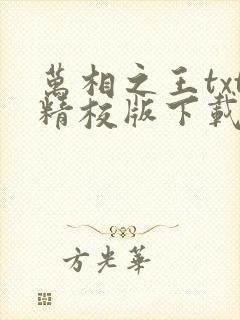 萬相之王txt
精校版下載
方光華